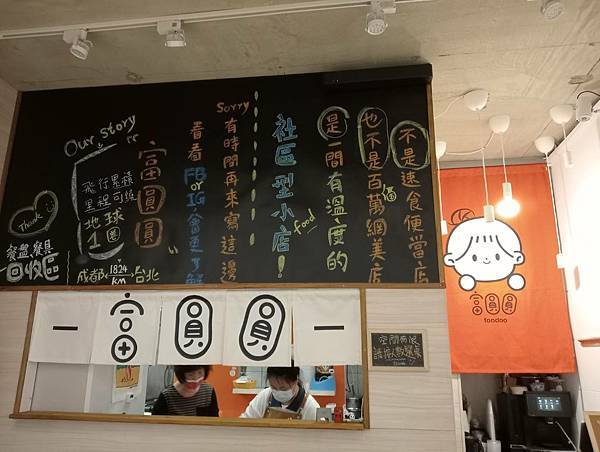 不是速食便當店
也不是百萬網美店
當
是一間有溫度的
社區型小店!
food
Sorry
有時間再來寫這邊
看看FB or IG會更了解
Our story
富圓圓
飛行累積
里程可繞
地球
1圈
成都 1824 km 台北
Thanks
餐盤、餐具
回收區
一富圓圓一
空間有限
請按人數選桌
富圓圓
foodoo